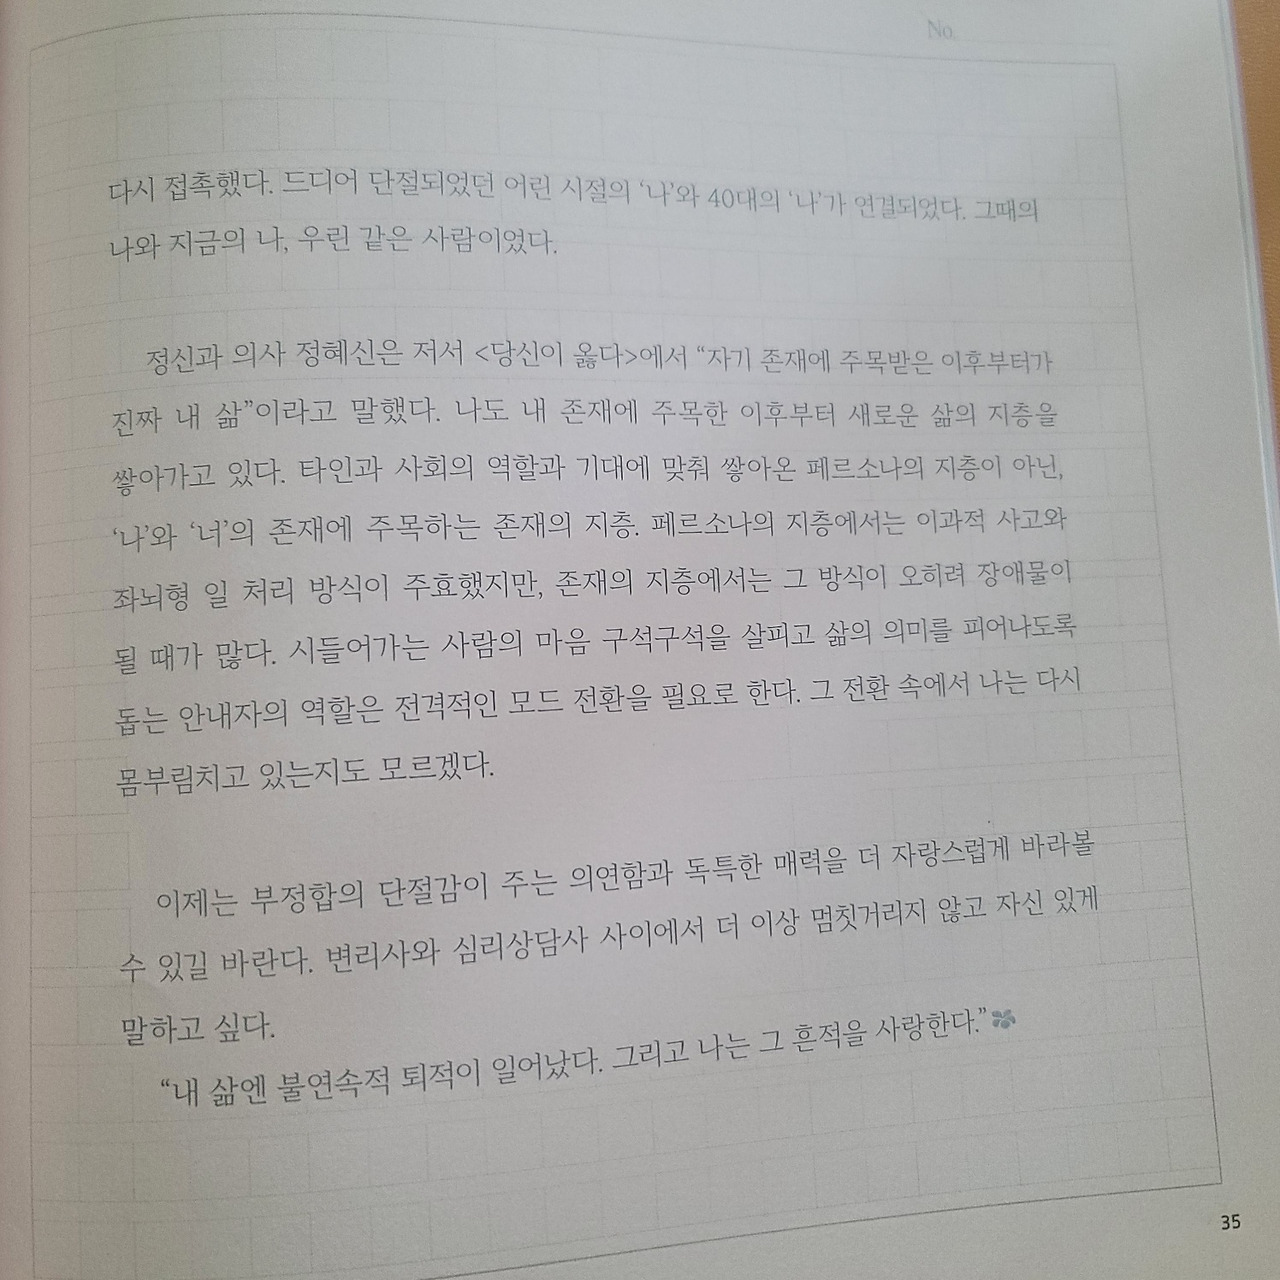 No.
다시 접촉했다. 드디어 단절되었던 어린 시절의 ‘나’와 40대의 ‘나’가 연결되었다. 그때의
나와 지금의 나, 우린 같은 사람이었다.
정신과 의사 정혜신은 저서 <당신이 옳다>에서 “자기 존재에 주목받은 이후부터가
진짜 내 삶”이라고 말했다. 나도 내 존재에 주목한 이후부터 새로운 삶의 지층을
쌓아가고 있다. 타인과 사회의 역할과 기대에 맞춰 쌓아온 페르소나의 지층이 아닌,
‘나’와 ‘너’의 존재에 주목하는 존재의 지층. 페르소나의 지층에서는 이과적 사고와
좌뇌형 일 처리 방식이 주효했지만, 존재의 지층에서는 그 방식이 오히려 장애물이
될 때가 많다. 시들어가는 사람의 마음 구석구석을 살피고 삶의 의미를 피어나도록
돕는 안내자의 역할은 전격적인 모드 전환을 필요로 한다. 그 전환 속에서 나는 다시
몸부림치고 있는지도 모르겠다.
이제는 부정합의 단절감이 주는 의연함과 독특한 매력을 더 자랑스럽게 바라볼
수 있길 바란다. 변리사와 심리상담사 사이에서 더 이상 멈칫거리지 않고 자신 있게
말하고 싶다.
“내 삶엔 불연속적 퇴적이 일어났다. 그리고 나는 그 흔적을 사랑한다.”
35